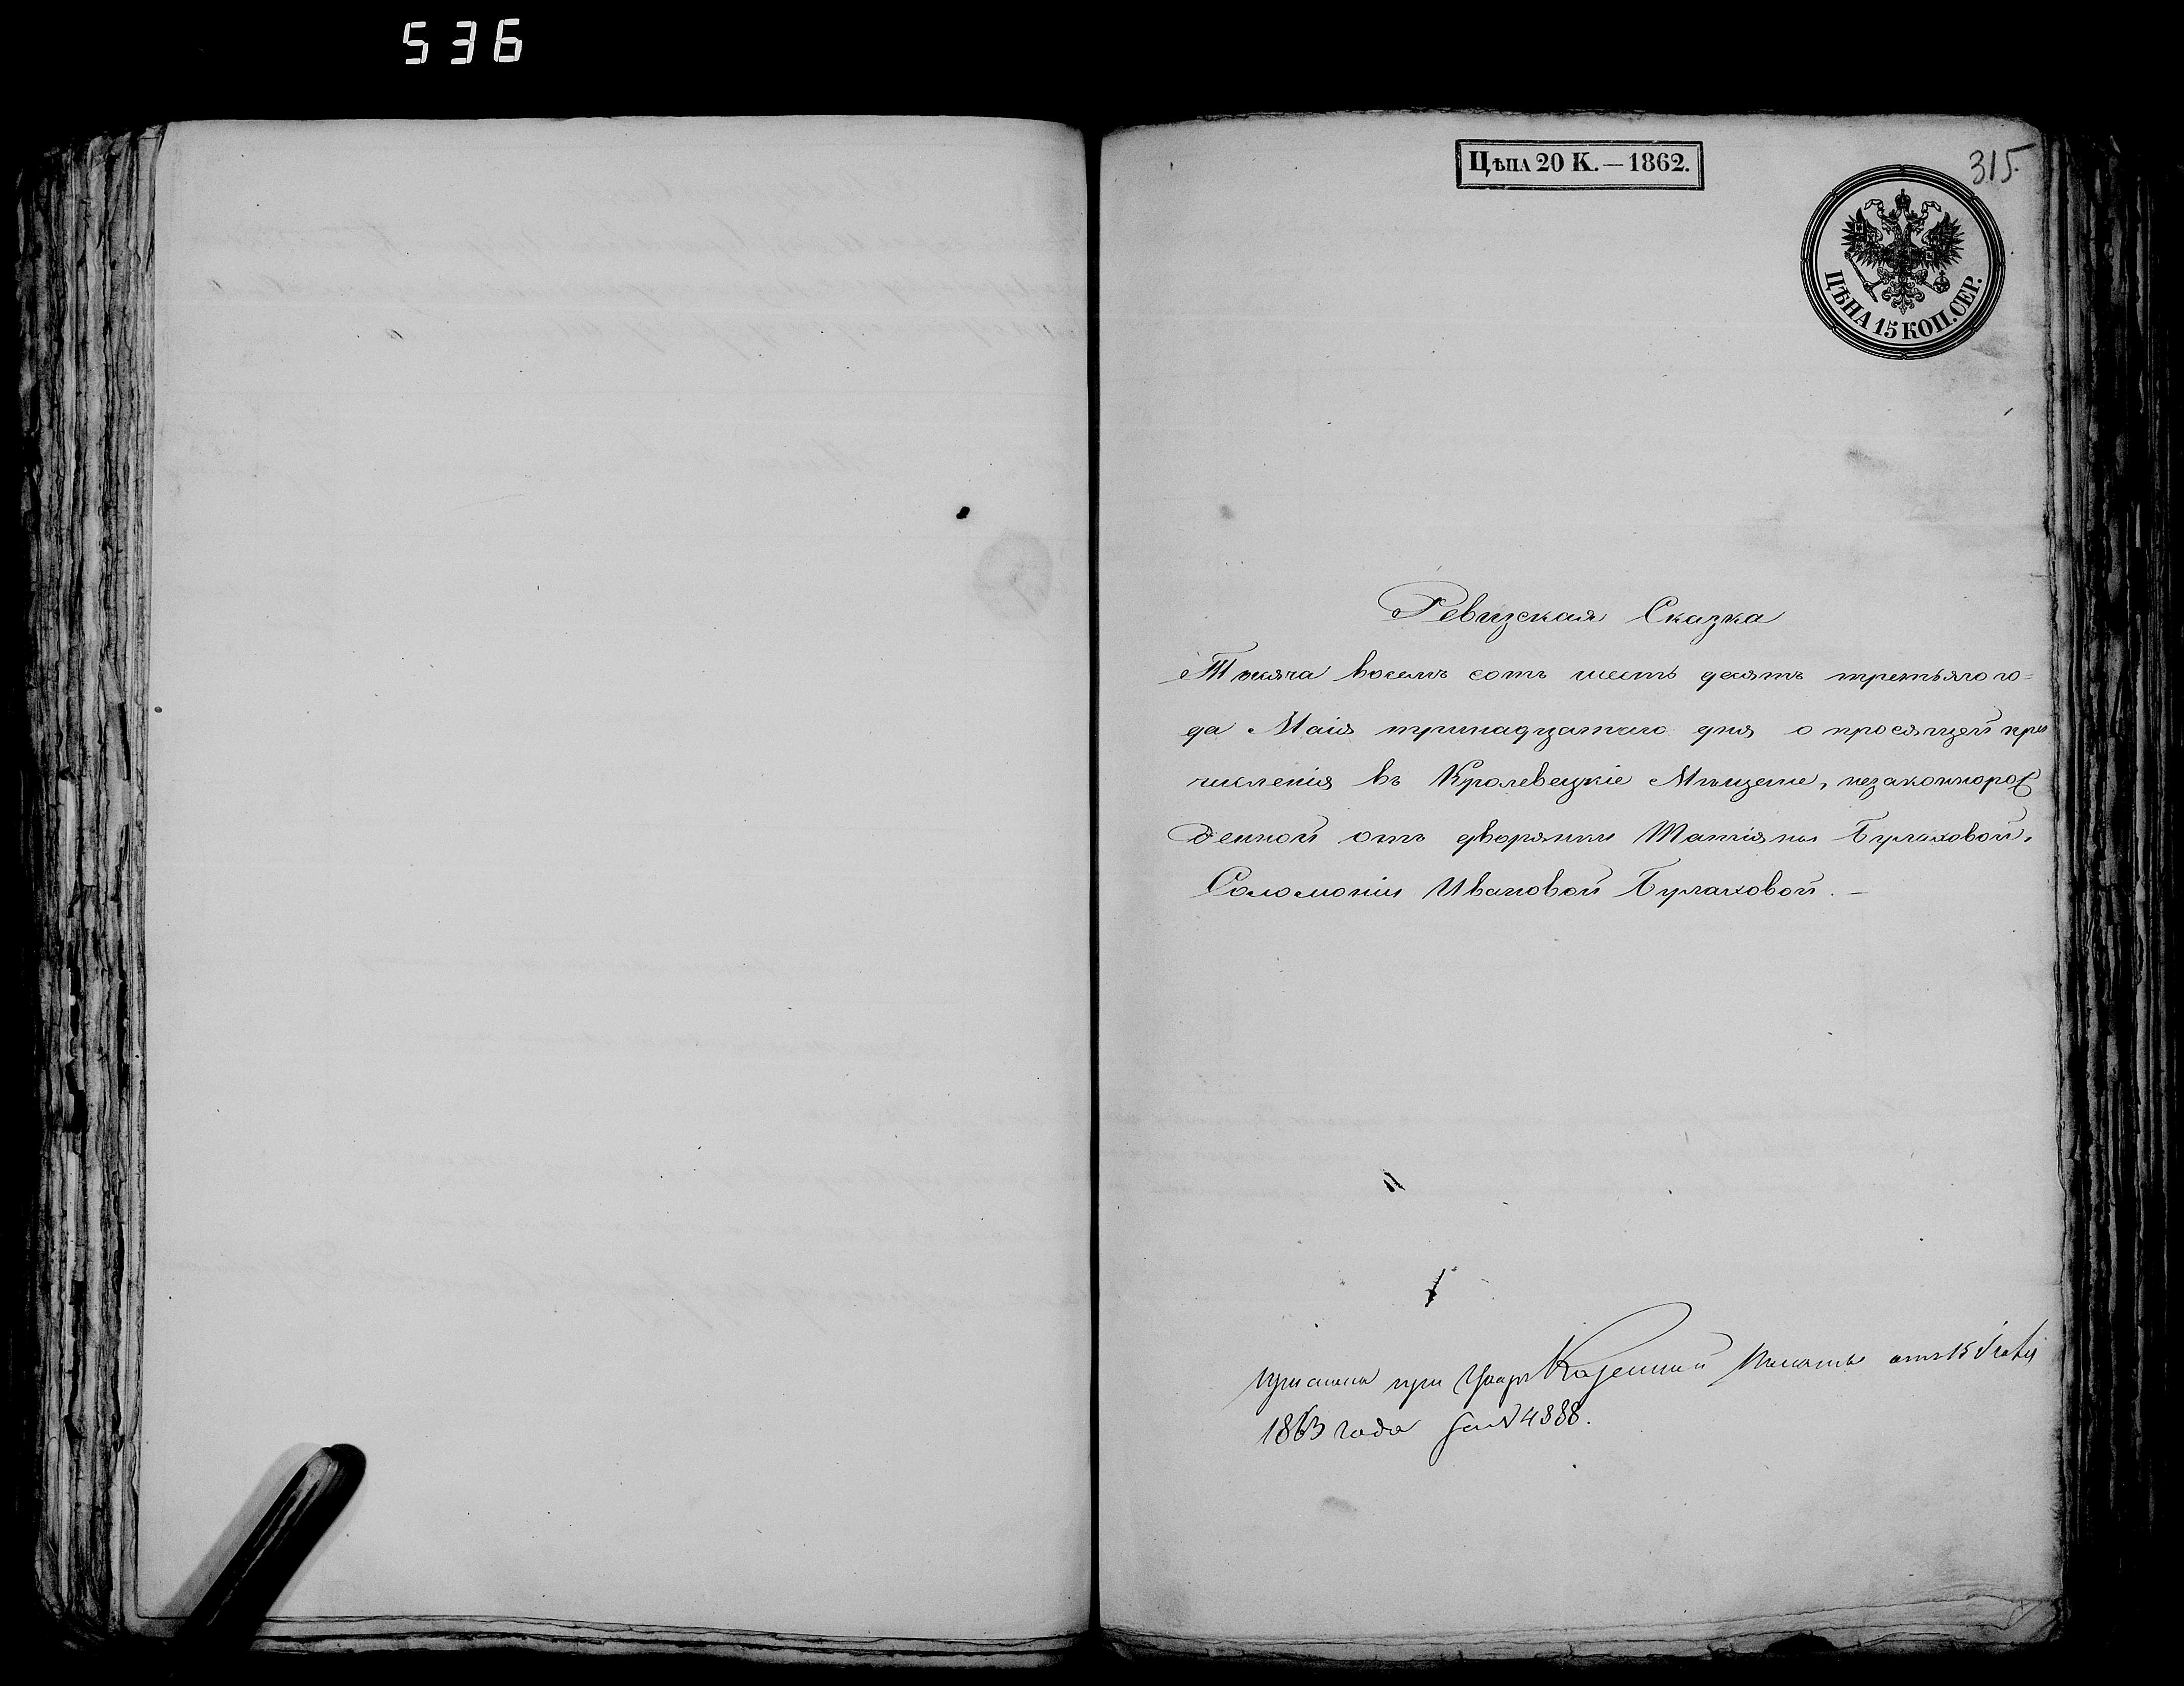 536
Цѣна 20 К.—1862.
315.
ЦѢНА 15 КОП. СЕР.
Ревизская Сказка
Тысяча восемь сотъ шесть десятъ третьяго го=
да Маія тринадцатаго дня о просящей при
численія въ Кролевецкіе Мѣщане, незаконнорож
денной отъ дворянки Татіяны Булаховой,
Соломоніи Ивановой Булаховой.—
при Казенной Палаты отъ 15
1863 года за № 4388.